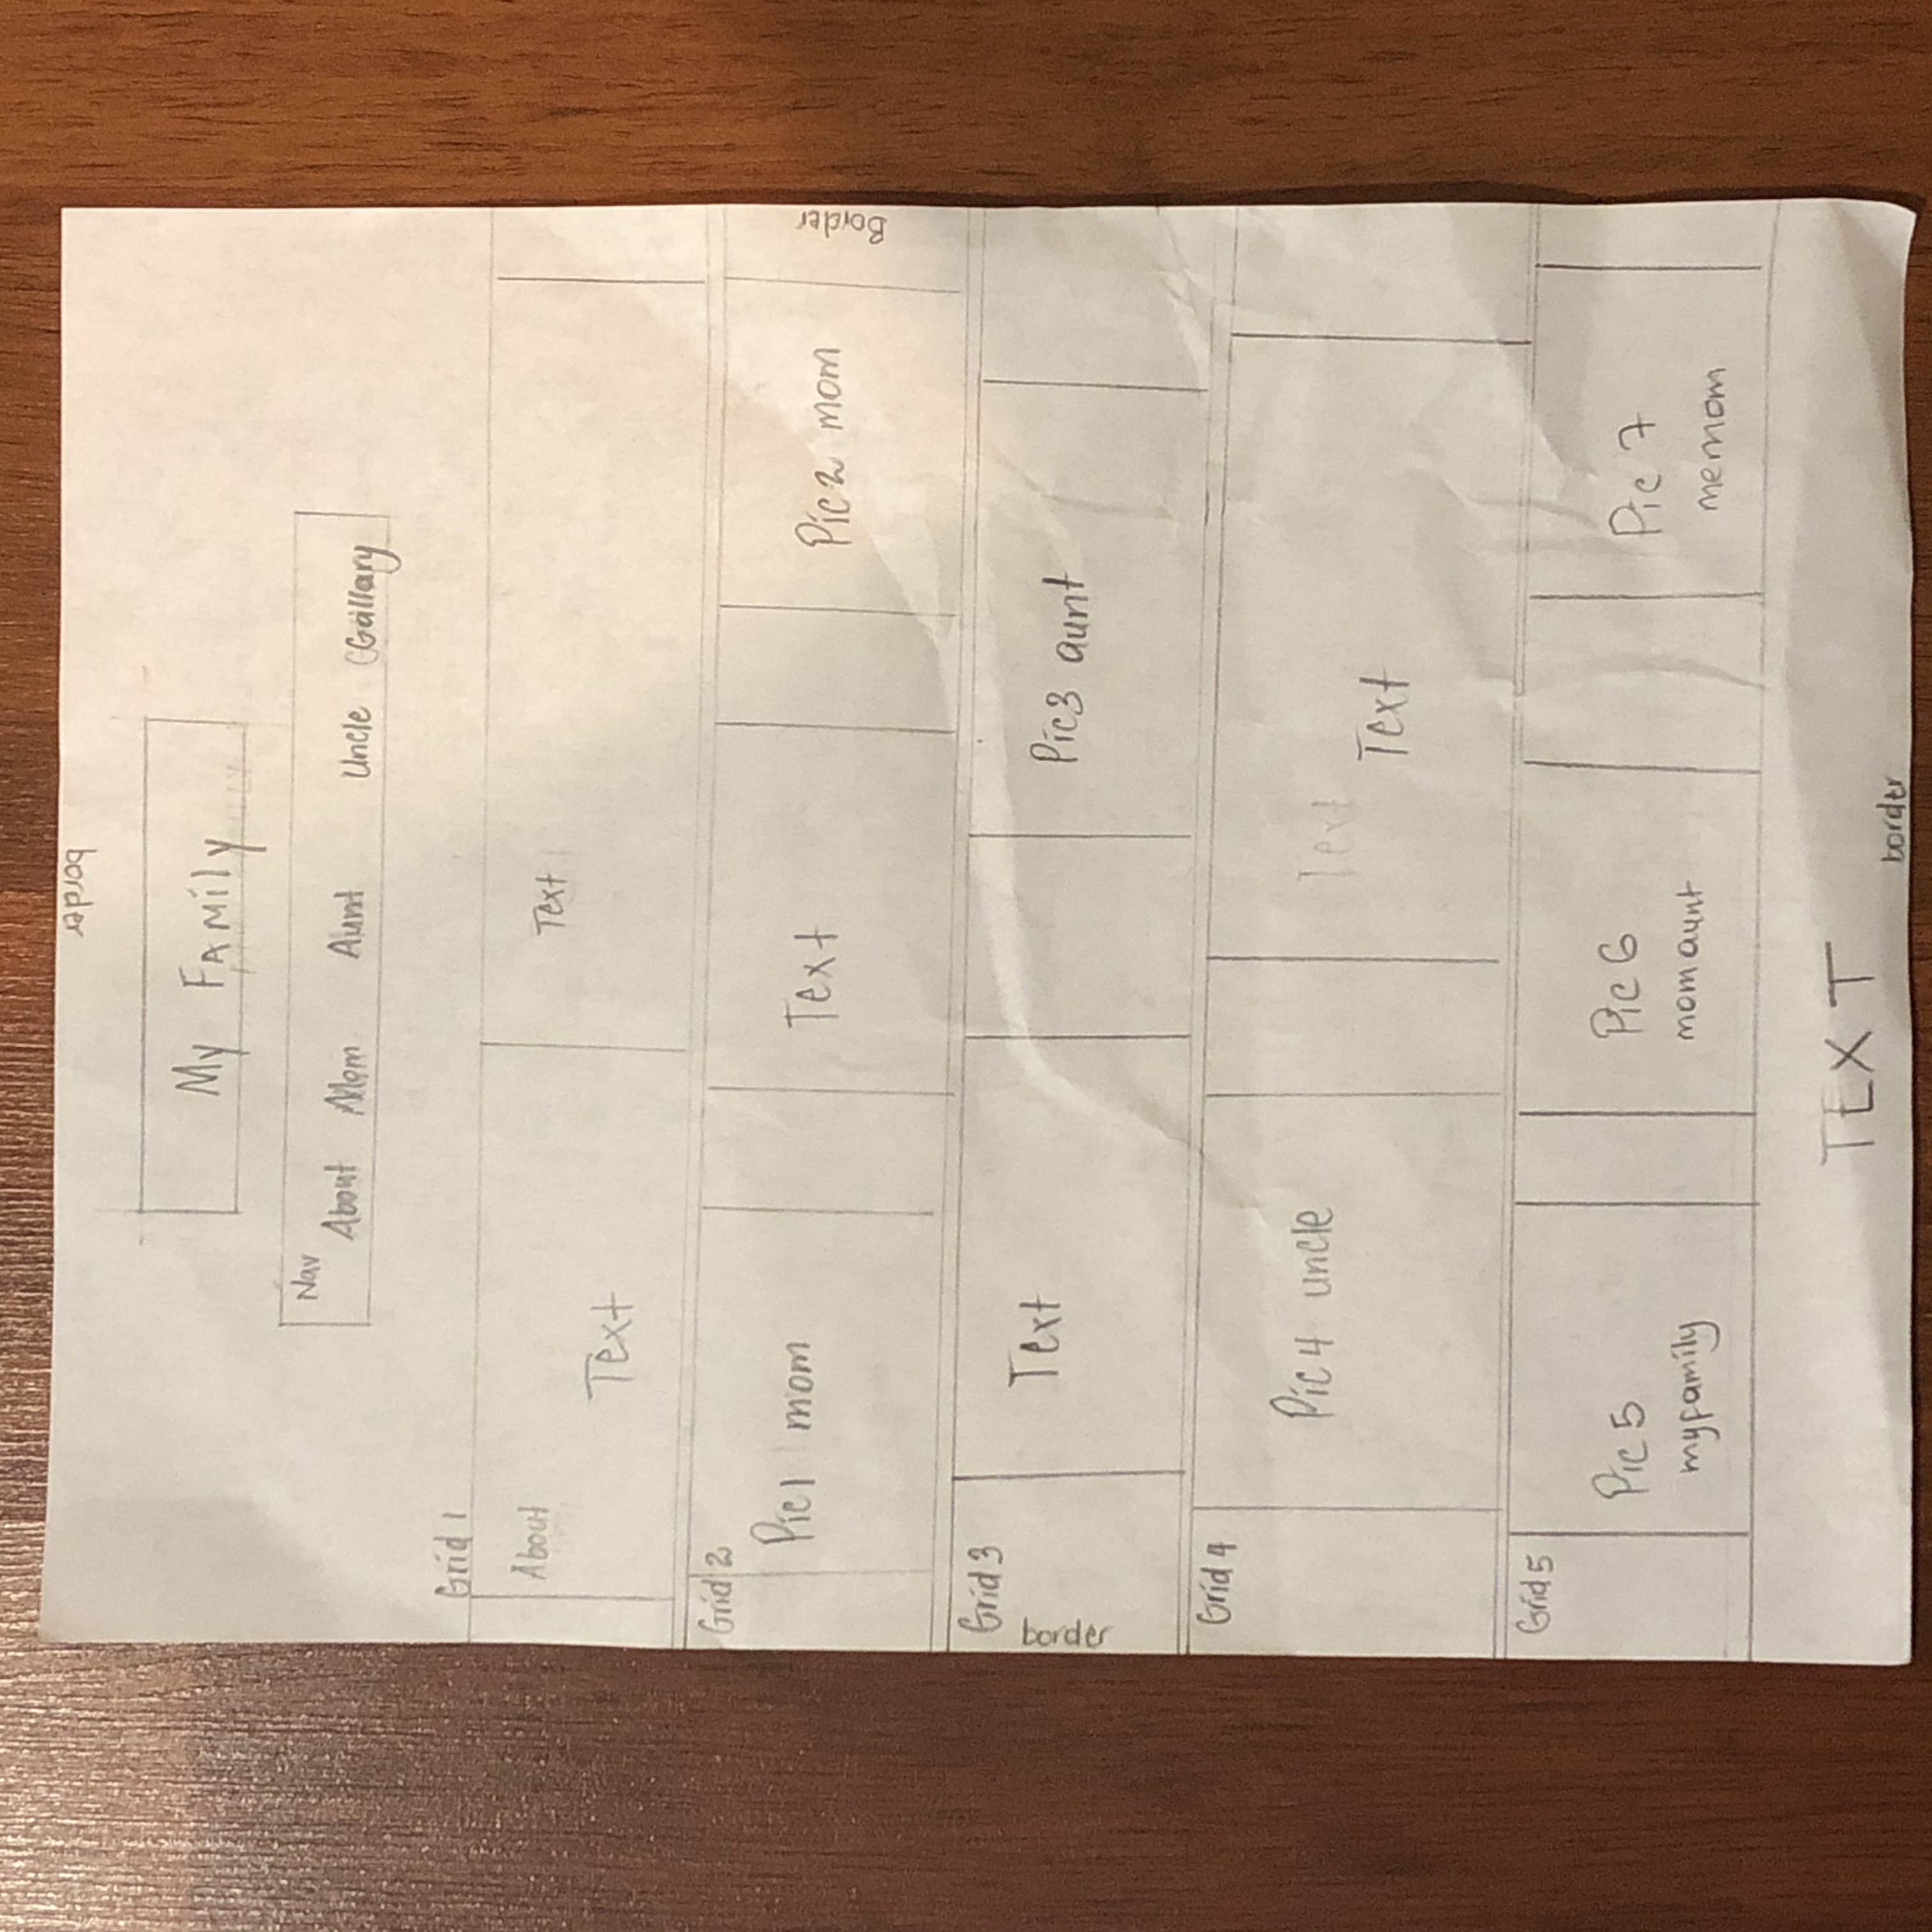 border
My FAMily
Nav
About Mom Aunt Uncle Gallary
Grid 1
About
Text
Text
Grid 2
Pic1 mom
Text
Pic2 mom
Border
Grid 3
border
Text
Pic3 aunt
Grid 4
Pic 4 uncle
Text
Text
Grid 5
Pic 5
myfamily
Pic 6
mom aunt
Pic 7
memom
TEXT
border